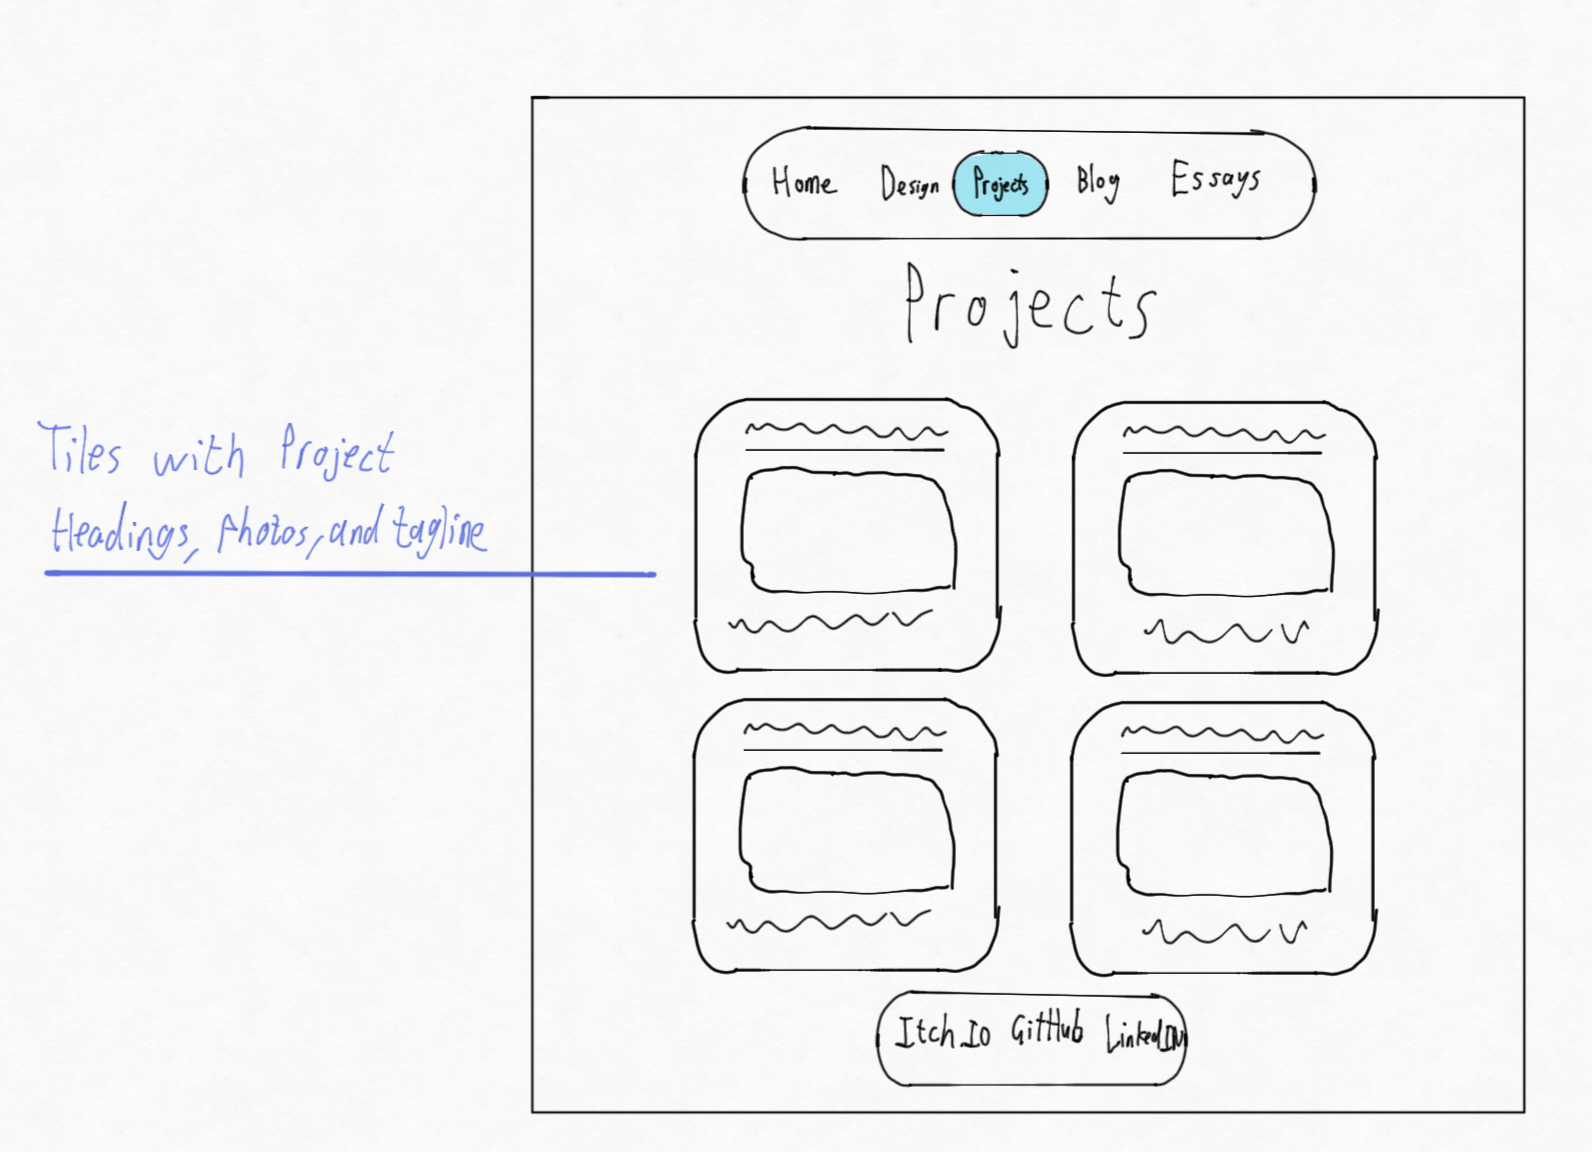 Home Design Projects Blog Essays
Projects
Tiles with Project
Headings, photos, and tagline
Itch Io GitHub LinkedIN